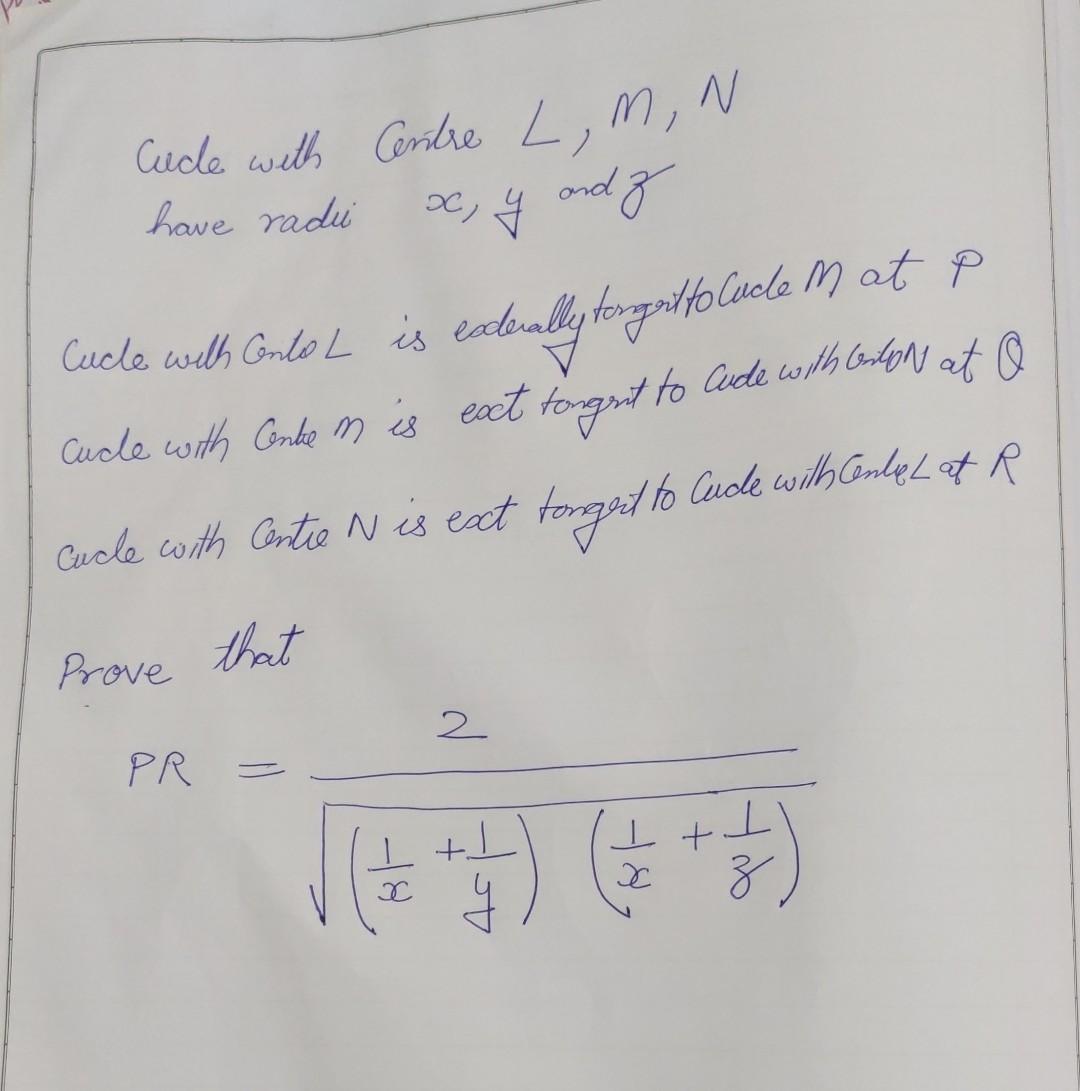 Circle with Centre L, M, N
have radii x, y and z
Circle with Centre L is externally tangent to Circle M at P
Circle with Centre M is ext tangent to Circle with Centre N at Q
Circle with Centre N is ext tangent to Circle with Centre L at R
Prove that
PR = 2 / √((1/x + 1/y) (1/x + 1/z))